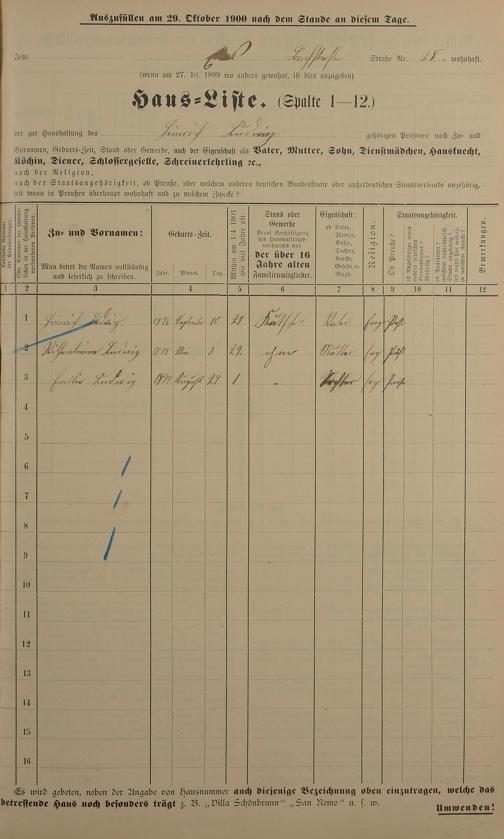 Auszufüllen am 29. Oktober 1900 nach dem Stande an diesem Tage.
Jetzt Bachstraße Straße Nr. 28. wohnhaft.
(wenn am 27. 10. 1899 wo anders gewohnt, ist dies anzugeben)
Haus-Liste. (Spalte 1—12.)
der zur Haushaltung des Heinrich Ludwig gehörigen Personen nach Zu- und
Vornamen, Geburts-Zeit, Stand oder Gewerbe, nach der Eigenschaft als Vater, Mutter, Sohn, Dienstmädchen, Hausknecht,
Köchin, Diener, Schlossergeselle, Schreinerlehrling ec.,
nach der Religion,
nach der Staatsangehörigkeit, ob Preuße, oder welchem anderen deutschen Bundesstaate oder außerdeutschen Staatsverbande angehörig,
seit wann in Preußen überhaupt wohnhaft und zu welchem Zwecke?
Zu- und Vornamen:
Man bittet die Namen vollständig
und leserlich zu schreiben.
Geburts-Zeit.
Jahr. Monat. Tag.
Mithin am 1./4. 1901
wie viel Jahre alt.
Stand oder
Gewerbe
der über 16
Jahre alten
Familienmitglieder.
Eigenschaft:
ob Vater,
Mutter,
Sohn,
Tochter,
Knecht,
Geselle ec.
Magd.
Religion.
Staatsangehörigkeit.
Ob Preuße?
Bemerkungen.
1 2 3 4 5 6 7 8 9 10 11 12
1 Heinrich Ludwig September Kutscher Vater
2 Wilhelmine Ludwig Mai 3 22 ohne Mutter
3 Emilie Ludwig 1899 August 29 1 „ Tochter
4
5
6
7
8
9
10
11
12
13
14
15
16
Es wird gebeten, neben der Angabe von Hausnummer auch diejenige Bezeichnung oben einzutragen, welche das
betreffende Haus noch besonders trägt z. B. „Villa Schönbrunn" „San Remo" u. s. w.
Umwenden!